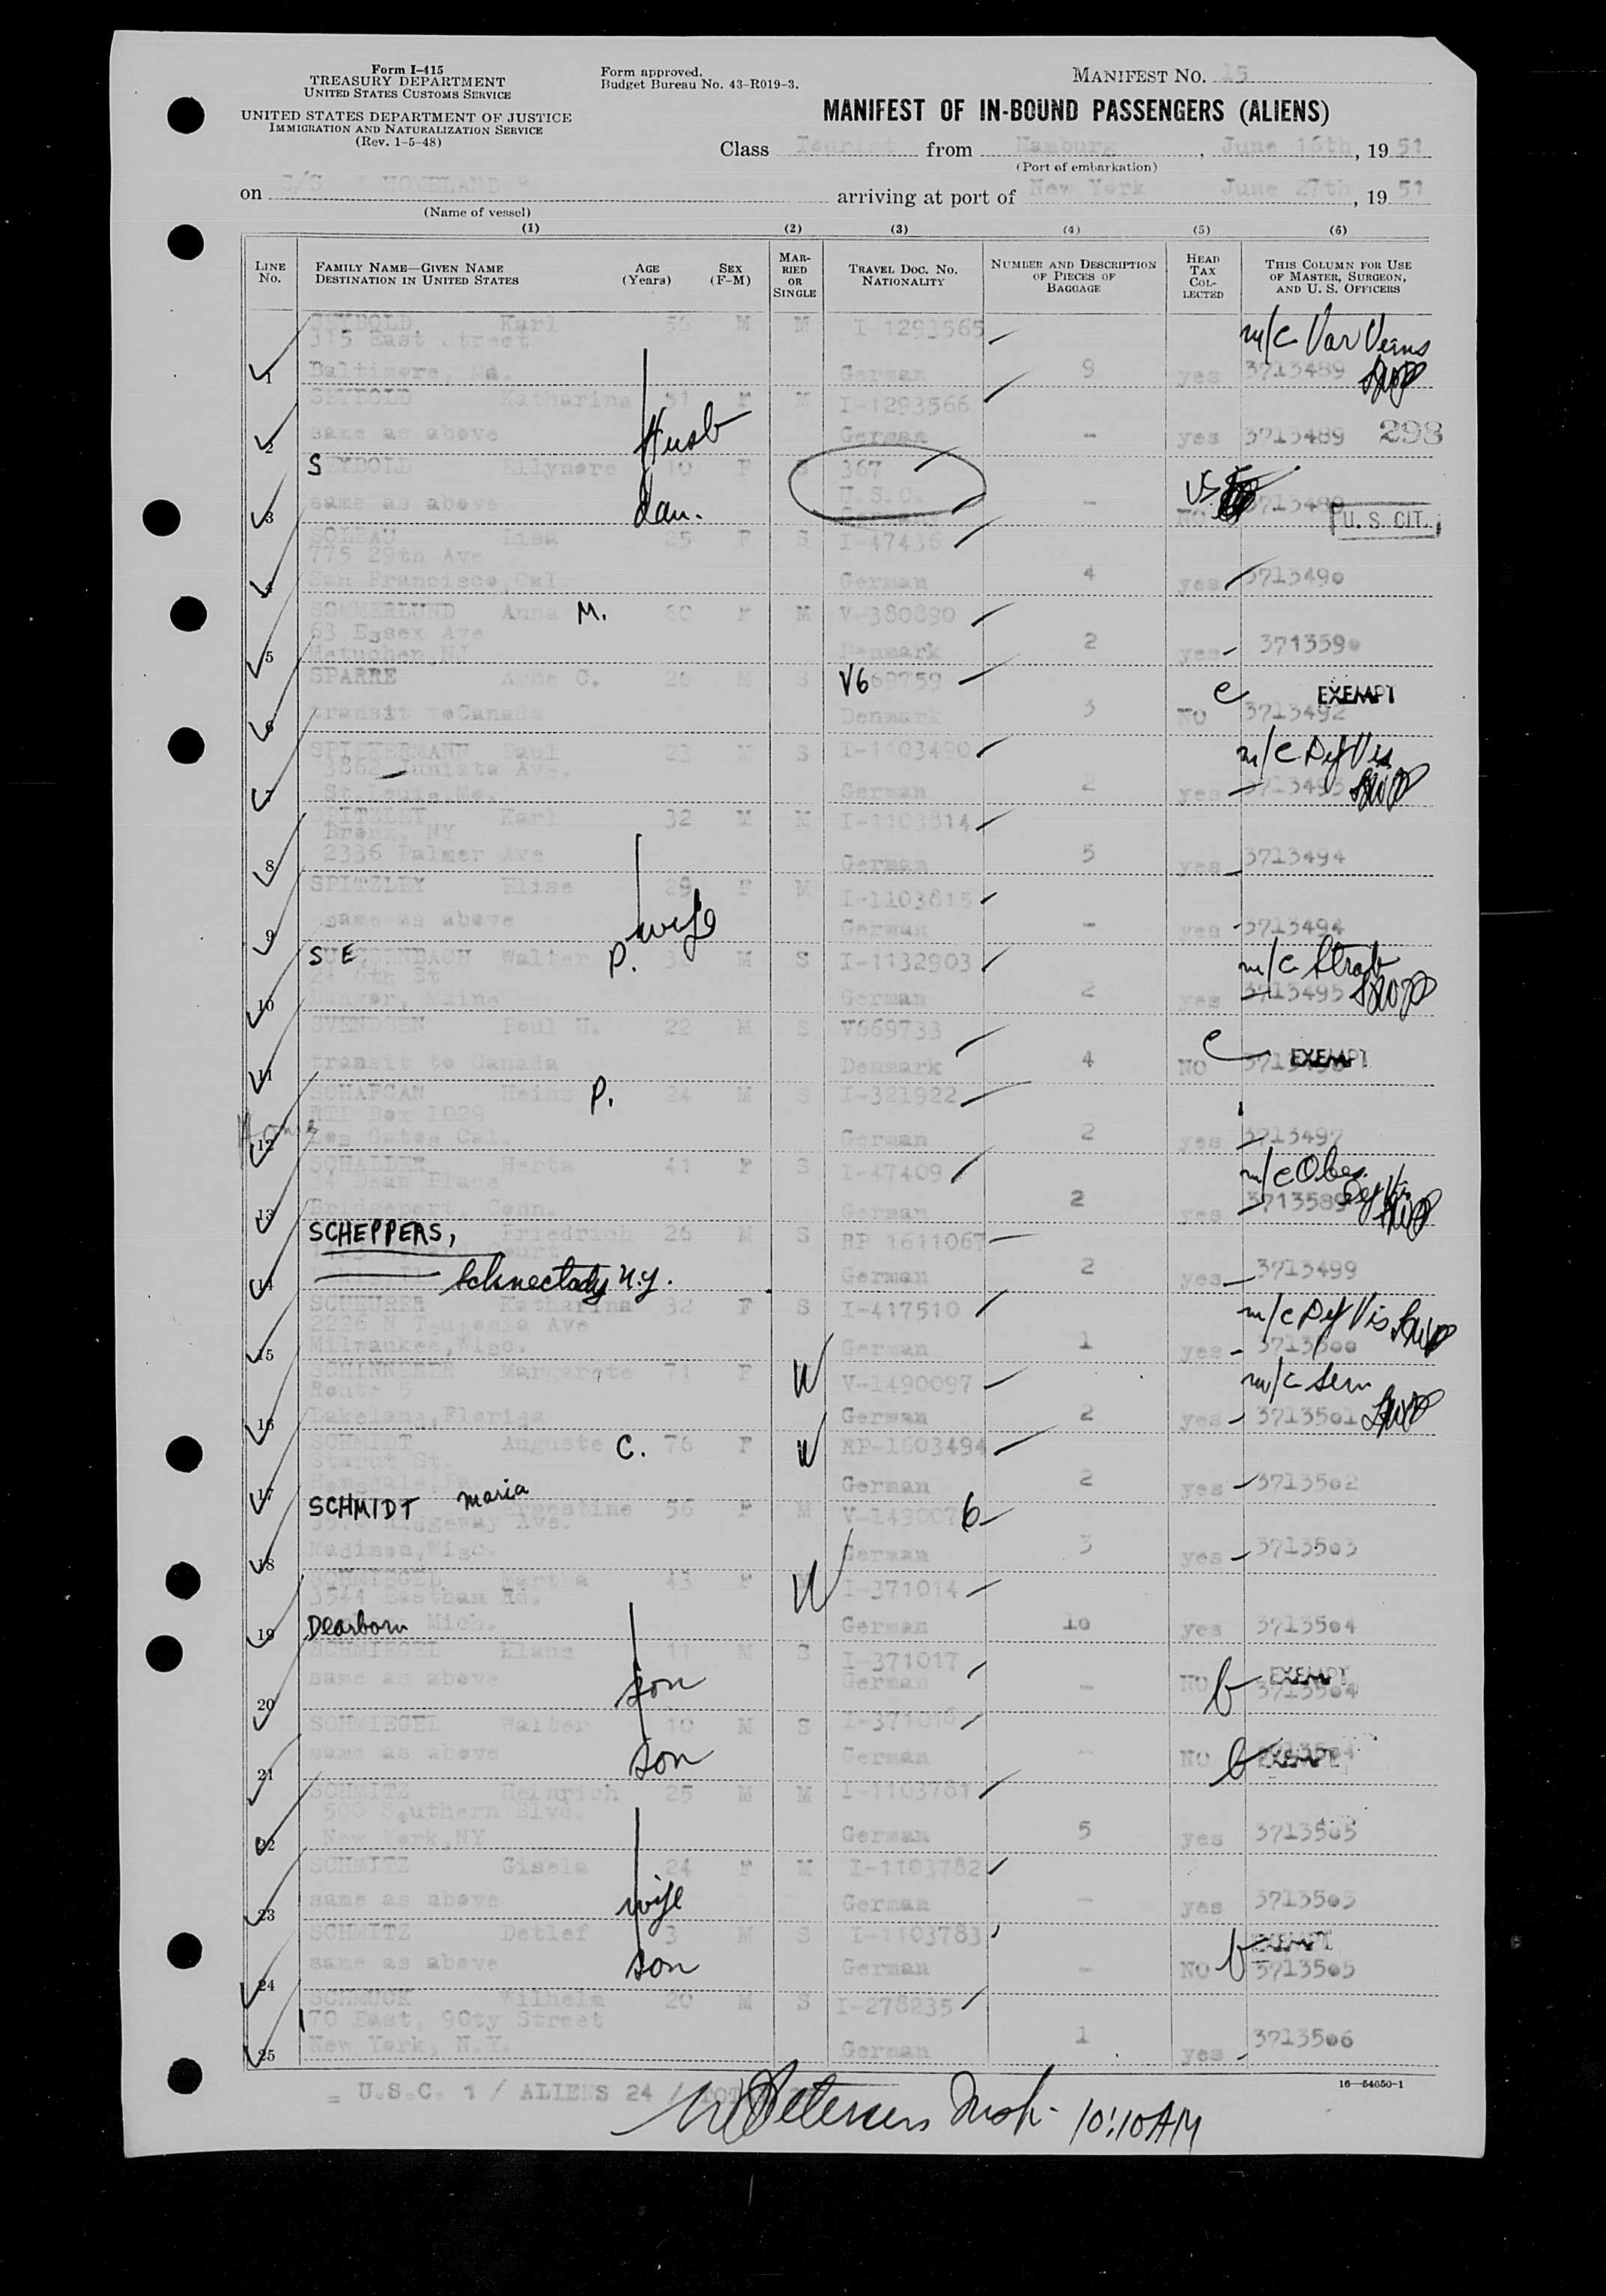 Form I-415
TREASURY DEPARTMENT
UNITED STATES CUSTOMS SERVICE
UNITED STATES DEPARTMENT OF JUSTICE
IMMIGRATION AND NATURALIZATION SERVICE
(Rev. 1-5-48)
Form approved.
Budget Bureau No. 43-R019-3.
MANIFEST NO. 15
MANIFEST OF IN-BOUND PASSENGERS (ALIENS)
Class Tourist from Hamburg, June 16th, 19 51
(Port of embarkation)
on S/S " HOMELAND " arriving at port of New York June 27th, 19 51
(Name of vessel)
(1) (2) (3) (4) (5) (6)
LINE No. FAMILY NAME—GIVEN NAME DESTINATION IN UNITED STATES AGE (Years) SEX (F-M) MARRIED OR SINGLE TRAVEL DOC. NO. NATIONALITY NUMBER AND DESCRIPTION OF PIECES OF BAGGAGE HEAD TAX COLLECTED THIS COLUMN FOR USE OF MASTER, SURGEON, AND U. S. OFFICERS
SEYBOLD Karl 56 M M I-1293565 m/c Var Veins
315 East Street
1 Baltimore, Md. German 9 yes 3713489
SEYBOLD Katharina 51 F M I-1293566
Husb
2 same as above German - yes 3713489 298
SEYBOLD Ellynore 10 F S 367
U.S.C.
3 same as above dau. German - NO 3713489 U. S. CIT.
SOLBAU Lisa 25 F S I-47436
775 29th Ave
4 San Francisco, Cal. German 4 yes 3713490
SOMMERLUND Anna M. 60 F M V-380890
63 Essex Ave
5 Metuchen, NJ Denmark 2 yes 3713590
SPARRE Arne C. 26 M S V669759 e EXEMPT
6 transit to Canada Denmark 3 NO 3713492
SPIEKERMANN Paul 23 M S I-1103490 m/c Def Vis
3862 Juniata Ave.
7 St. Louis, Mo. German 2 yes 3713493
SPITZLEY Karl 32 M M I-1103814
Bronx, NY
8 2336 Palmer Ave German 5 yes 3713494
SPITZLEY Elise 29 F M I-1103815
9 same as above wife German - yes 3713494
SUESSENBACH Walter P. M S I-1132903 m/c Strab
24 6th St
10 Bangor, Maine German 2 yes 3713495
SVENDSEN Poul H. 22 M S V669733 e EXEMPT
11 transit to Canada Denmark 4 NO
SCHAFGAN Heinz P. 24 M S I-321922
RTI Box 1029
12 Los Gatos Cal. German 2 yes 3713497
SCHALLER Herta 41 F S I-47409 m/c Obes.
34 Dean Place Def Vis
13 Bridgeport, Conn. German 2 yes 3713589
SCHEPPERS, Friedrich 26 M S RP 1611067
Court
14 Schnectady N.Y. German 2 yes 3713499
SCHEURER Katharina 32 F S I-417510 m/c Def Vis
2226 N Teutonia Ave
15 Milwaukee, Wisc. German 1 yes 3713500
SCHINNERER Margarete 71 F W V-1490097 m/c Sen
Route 5
16 Lakeland, Florida German 2 yes 3713501
SCHMIDT Auguste C. 76 F W RP-1603494
St.
17 German 2 yes 3713502
SCHMIDT maria Ernestine 56 F M V-1490076
Ridgeway Ave.
18 Madison, Wisc. German 3 yes 3713503
SCHMIEGEL Martha 43 F W I-371014
3544 Eastham Rd.
19 Dearborn Mich. German 10 yes 3713504
SCHMIEGEL Klaus 11 M S I-371017 b EXEMPT
20 same as above son German - NO 3713504
SCHMIEGEL Walter 10 M S I-371016
21 same as above son German - NO b EXEMPT
SCHMITZ Heinrich 25 M M I-1103781
500 Southern Blvd.
22 New York, NY German 5 yes 3713505
SCHMITZ Gisela 24 F M I-1103782
23 same as above wife German - yes 3713505
SCHMITZ Detlef 3 M S I-1103783 b EXEMPT
24 same as above son German - NO 3713505
SCHMUCK Wilhelm 20 M S I-278235
170 East, 90ty Street
25 New York, N.Y. German 1 yes 3713506
= U.S.C. 1 / ALIENS 24 /
16—54650-1
Petersen Insp. 10:10 AM